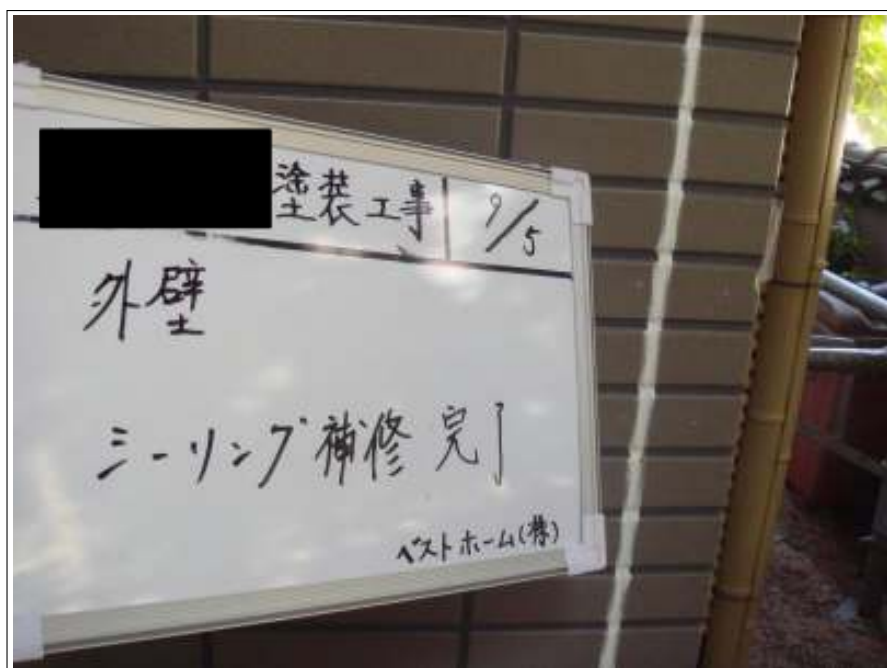 塗装工事 9/5
外壁
シーリング補修完了
ベストホーム(株)